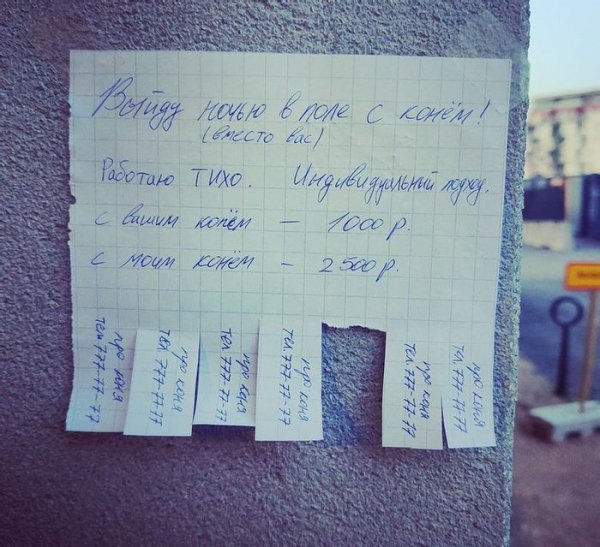 Выйду ночью в поле с конём!
(вместо вас)
Работаю ТИХО. Индивидуальный подход.
с вашим конём – 1000 р.
с моим конём – 2500 р.
про коня
тел. 777-77-77
про коня
тел. 777-77-77
про коня
тел. 777-77-77
про коня
тел. 777-77-77
про коня
тел. 777-77-77
про коня
тел. 777-77-77